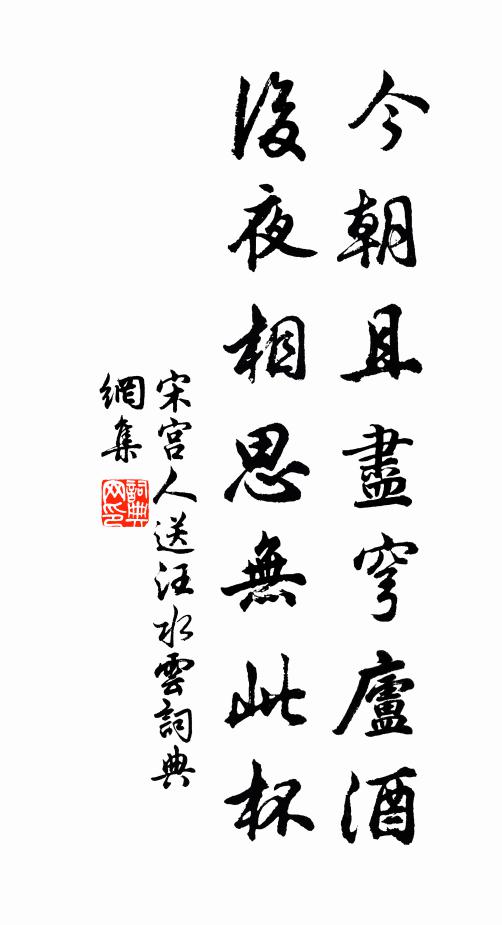 今朝且盡穹廬酒
後夜相思無此杯
宋宮人送汪水雲詞典
網集
詞典
网印